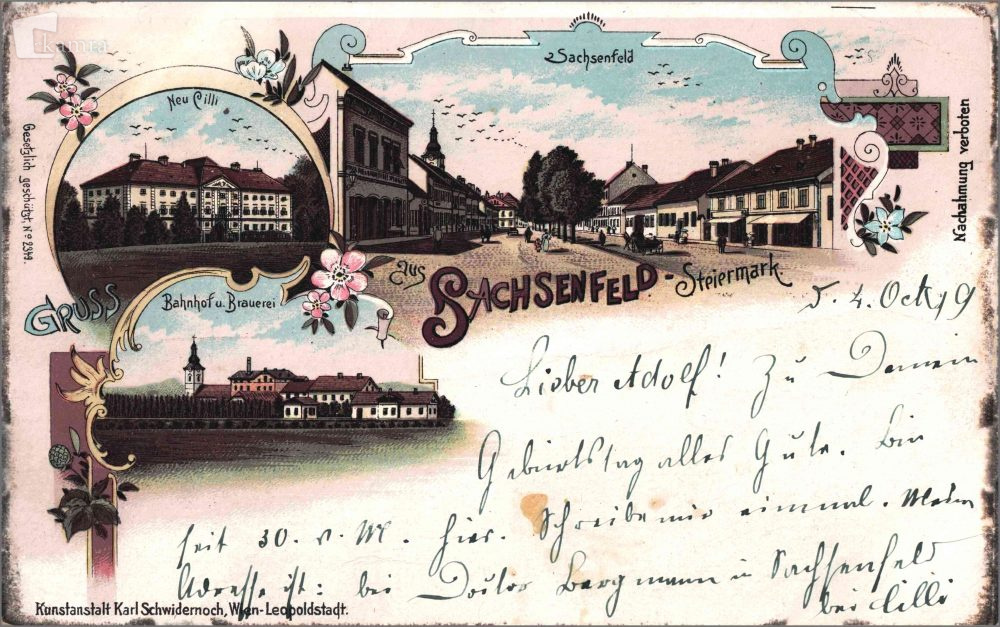 kamra
Sachsenfeld
Neu Cilli
Gesetzlich geschützt, No 2349.
Nachahmung verboten
Gruss
aus
Sachsenfeld - Steiermark.
Bahnhof u. Brauerei
d. 4. Oct
Lieber Adolf! Zu Deinem
Geburtstag alles Gute. Bin
seit 30. v. M. hier. Schreibe mir einmal. Meine
Adresse ist: bei Doctor Bergmann in Sachsenfeld
bei Cilli
Kunstanstalt Karl Schwidernoch, Wien-Leopoldstadt.